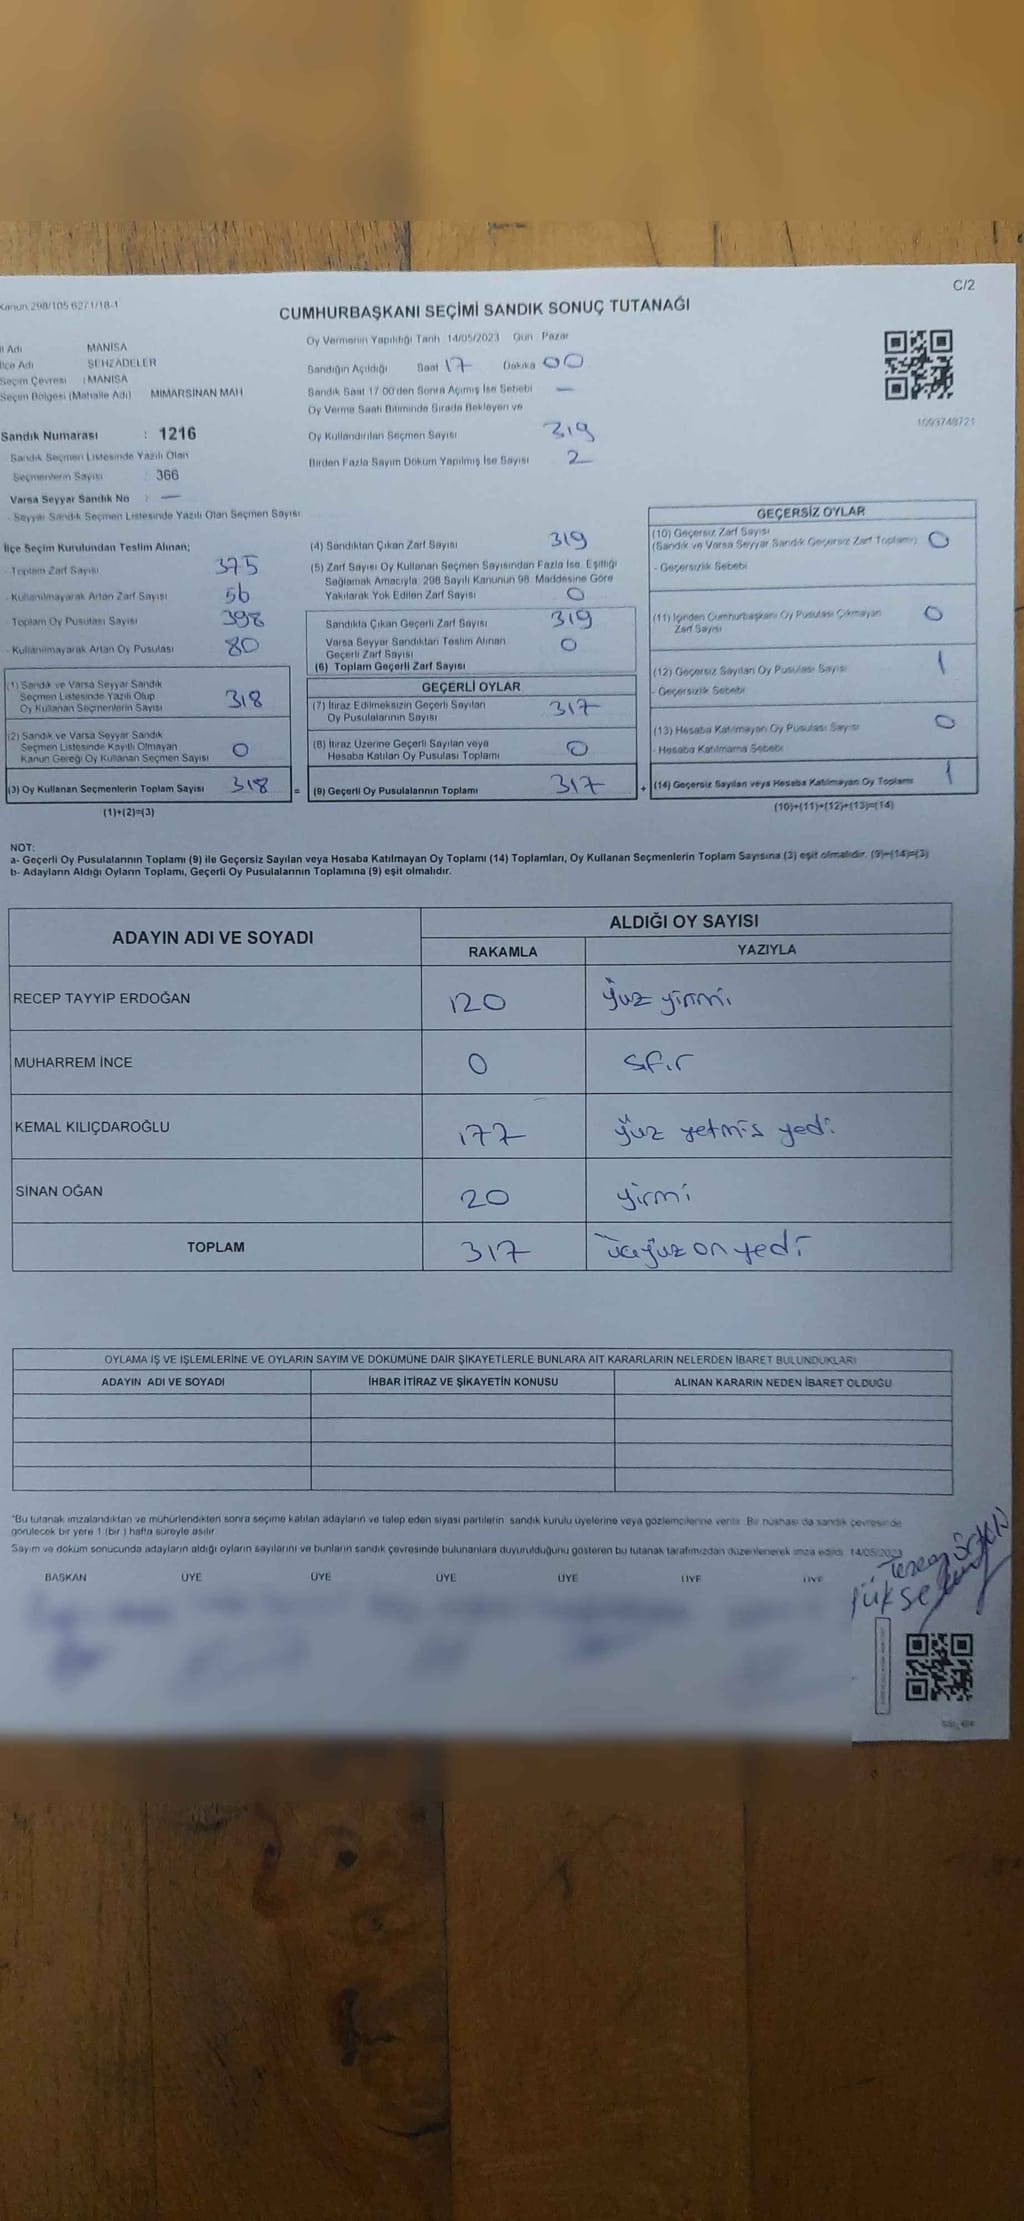 Kanun 298/105 6271/18-1
C/2
CUMHURBAŞKANI SEÇİMİ SANDIK SONUÇ TUTANAĞI
İl Adı MANİSA
İlçe Adı ŞEHZADELER
Seçim Çevresi : MANİSA
Seçim Bölgesi (Mahalle Adı) MİMARSİNAN MAH
Sandık Numarası : 1216
Sandık Seçmen Listesinde Yazılı Olan
Seçmenlerin Sayısı : 366
Varsa Seyyar Sandık No : —
- Seyyar Sandık Seçmen Listesinde Yazılı Olan Seçmen Sayısı
Oy Vermenin Yapıldığı Tarih 14/05/2023 Gün Pazar
Sandığın Açıldığı Saat 17 Dakika 00
Sandık Saat 17 00'den Sonra Açımış İse Sebebi —
Oy Verme Saati Bitiminde Sırada Bekleyen ve
Oy Kullandırılan Seçmen Sayısı 319
Birden Fazla Sayım Döküm Yapılmış İse Sayısı 2
1093748721
İlçe Seçim Kurulundan Teslim Alınan;
- Toplam Zarf Sayısı 375
- Kullanılmayarak Artan Zarf Sayısı 56
- Toplam Oy Pusulası Sayısı 398
- Kullanılmayarak Artan Oy Pusulası 80
(1) Sandık ve Varsa Seyyar Sandık
Seçmen Listesinde Yazılı Olup
Oy Kullanan Seçmenlerin Sayısı 318
(2) Sandık ve Varsa Seyyar Sandık
Seçmen Listesinde Kayıtlı Olmayan
Kanun Gereği Oy Kullanan Seçmen Sayısı 0
(3) Oy Kullanan Seçmenlerin Toplam Sayısı 318
(1)+(2)=(3)
(4) Sandıktan Çıkan Zarf Sayısı 319
(5) Zarf Sayısı Oy Kullanan Seçmen Sayısından Fazla İse, Eşitliği
Sağlamak Amacıyla 298 Sayılı Kanunun 98. Maddesine Göre
Yakılarak Yok Edilen Zarf Sayısı 0
Sandıkta Çıkan Geçerli Zarf Sayısı 319
Varsa Seyyar Sandıktan Teslim Alınan
Geçerli Zarf Sayısı 0
(6) Toplam Geçerli Zarf Sayısı
GEÇERLİ OYLAR
(7) İtiraz Edilmeksizin Geçerli Sayılan
Oy Pusulalarının Sayısı 317
(8) İtiraz Üzerine Geçerli Sayılan veya
Hesaba Katılan Oy Pusulası Toplamı 0
= (9) Geçerli Oy Pusulalarının Toplamı 317
GEÇERSİZ OYLAR
(10) Geçersiz Zarf Sayısı
(Sandık ve Varsa Seyyar Sandık Geçersiz Zarf Toplamı) 0
- Geçersizlik Sebebi
(11) İçinden Cumhurbaşkanı Oy Pusulası Çıkmayan
Zarf Sayısı 0
(12) Geçersiz Sayılan Oy Pusulası Sayısı 1
- Geçersizlik Sebebi
(13) Hesaba Katılmayan Oy Pusulası Sayısı 0
- Hesaba Katılmama Sebebi
+ (14) Geçersiz Sayılan veya Hesaba Katılmayan Oy Toplamı 1
(10)+(11)+(12)+(13)=(14)
NOT:
a- Geçerli Oy Pusulalarının Toplamı (9) ile Geçersiz Sayılan veya Hesaba Katılmayan Oy Toplamı (14) Toplamları, Oy Kullanan Seçmenlerin Toplam Sayısına (3) eşit olmalıdır. (9)+(14)=(3)
b- Adayların Aldığı Oyların Toplamı, Geçerli Oy Pusulalarının Toplamına (9) eşit olmalıdır.
ADAYIN ADI VE SOYADI ALDIĞI OY SAYISI
RAKAMLA YAZIYLA
RECEP TAYYIP ERDOĞAN 120 yüz yirmi
MUHARREM İNCE 0 sıfır
KEMAL KILIÇDAROĞLU 177 yüz yetmis yedi
SİNAN OĞAN 20 yirmi
TOPLAM 317 üçyüz on yedi
OYLAMA İŞ VE İŞLEMLERİNE VE OYLARIN SAYIM VE DÖKÜMÜNE DAİR ŞİKAYETLERLE BUNLARA AİT KARARLARIN NELERDEN İBARET BULUNDUKLARI
ADAYIN ADI VE SOYADI İHBAR İTİRAZ VE ŞİKAYETİN KONUSU ALINAN KARARIN NEDEN İBARET OLDUĞU
*Bu tutanak imzalandıktan ve mühürlendikten sonra seçime katılan adayların ve talep eden siyasi partilerin sandık kurulu üyelerine veya gözlemcilerine verilir. Bir nüshası da sandık çevresinde
görülecek bir yere 1 (bir) hafta süreyle asılır.
Sayım ve döküm sonucunda adayların aldığı oyların sayılarını ve bunların sandık çevresinde bulunanlara duyurulduğunu gösteren bu tutanak tarafımızdan düzenlenerek imza edildi. 14/05/2023
BAŞKAN ÜYE ÜYE ÜYE ÜYE ÜYE ÜYE